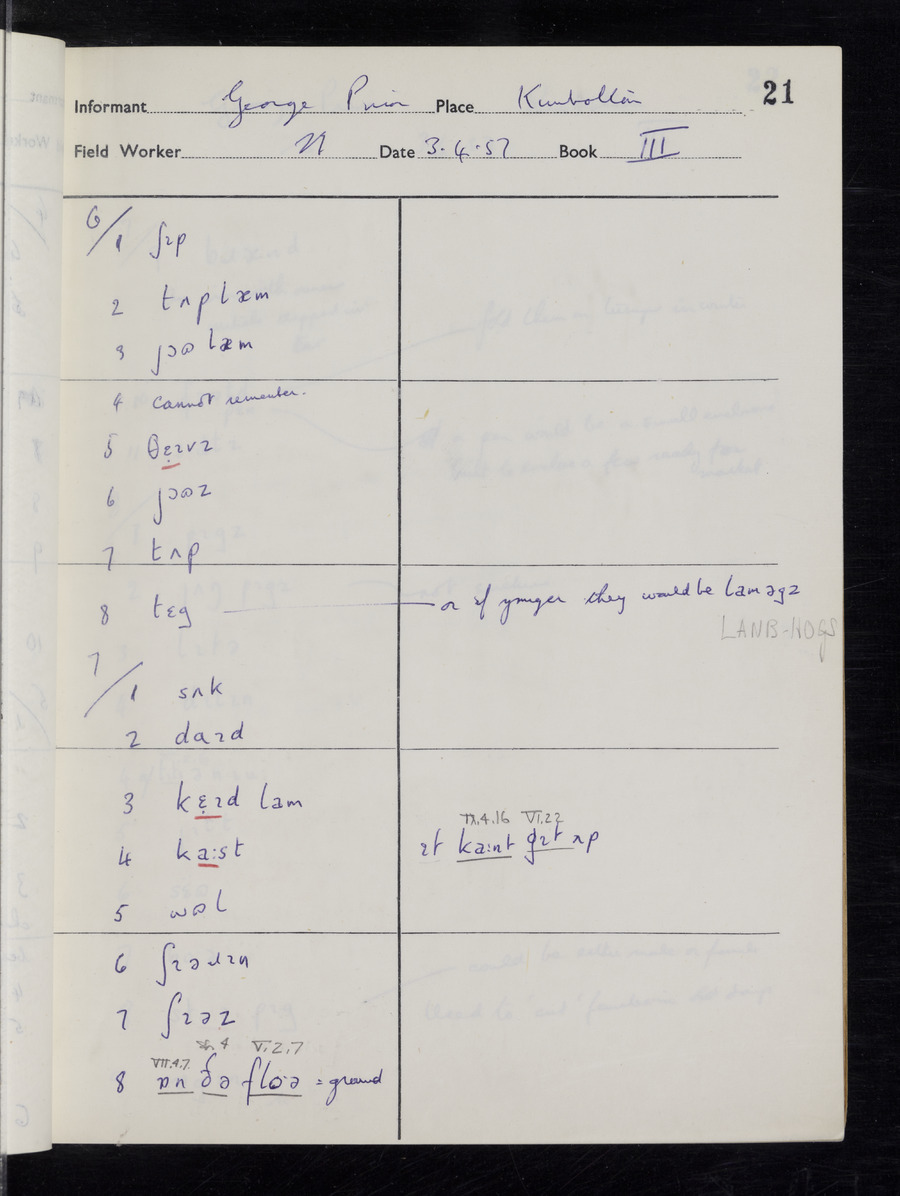 21
Informant George Prior Place Kimbolton
Field Worker N Date 3.4.57 Book III
6/1 ʃɪp
2 tʌplæm
3 jɔʊlæm
4 cannot remember.
5 θɛ̣ɪvz
6 jɔʊz
7 tʌp
8 tɛg — or if younger they would be laməgz
LAMB-HOGS
7/1 sʌk
2 daɪd
3 kɛ̣ɪd lam
IX.4.16 VI.22
4 ka:st ɪt ka:nt gɪt ʌp
5 wʊl
6 ʃɪəɹɪn
7 ʃɪəz
VII.4.7 4 V.2.7
8 ɒn ðə flɔ·ə = ground